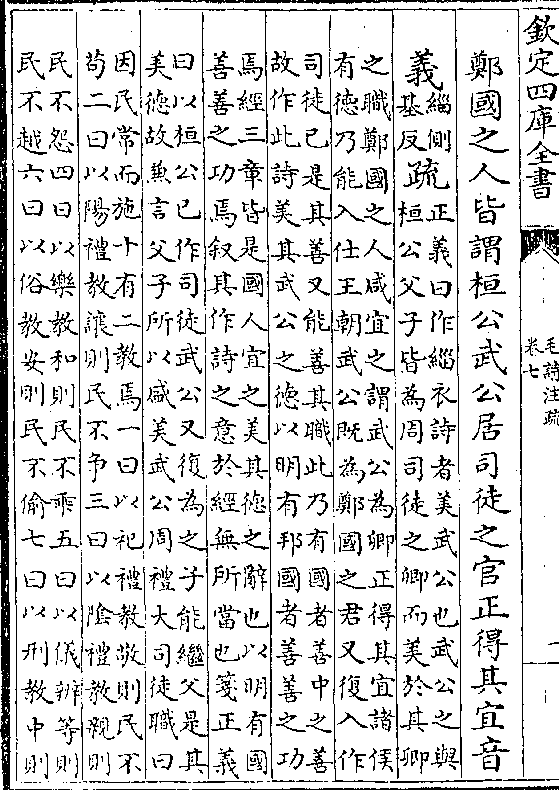 欽定四庫全書
毛詩注疏
卷七
鄭國之人皆謂桓公武公居司徒之官正得其宜音
義緇側基反疏正義曰作緇衣詩者美武公也武公之與
桓公父子皆為周司徒之卿而美於其卿
之職鄭國之人咸宜之謂武公為卿正得其宜諸侯
有德乃能入仕王朝武公既為鄭國之君又復入作
司徒已是其善又能善其職此乃有國者善中之善
故作此詩美其武公之德以明有邦國者善善之功
焉經三章皆是國人宜之美其德之辭也以明有國
善善之功焉叙其作詩之意於經無所當也箋正義
曰以桓公已作司徒武公又復為之子能繼父是其
美徳故兼言父子所以咸美武公周禮大司徒職曰
因民常而施十有二教焉一曰以祀禮教敬則民不
苟二曰以陽禮教讓則民不争三曰以陰禮教親則
民不怨四曰以樂教和則民不乖五曰以儀辨等則
民不越六曰以俗教安則民不偷七曰以刑教中則